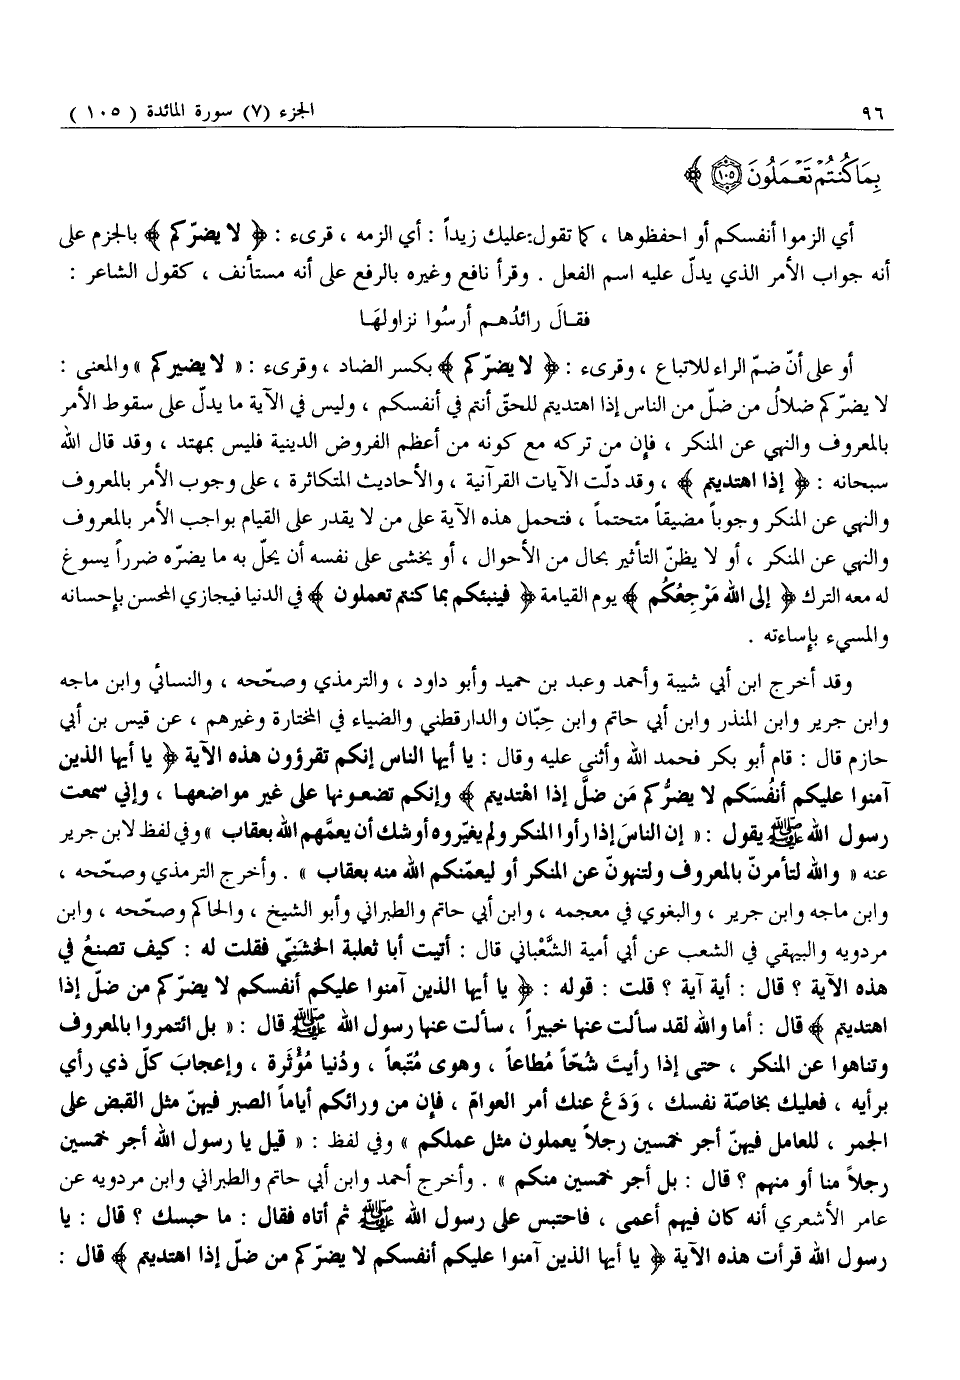 ٩٦ الجزء (٧) سورة المائدة ( ١٠٥ )
بِمَا كُنتُمْ تَعْمَلُونَ ﴿١٠٥﴾ ﴾
أي الزموا أنفسكم أو احفظوها ، كما تقول:عليك زيداً : أي الزمه ، قرىء : ﴿ لا يضرّكم ﴾ بالجزم على
أنه جواب الأمر الذي يدلّ عليه اسم الفعل . وقرأ نافع وغيره بالرفع على أنه مستأنف ، كقول الشاعر :
فقـالَ رائدُهـم أرسُوا نزاولهَـا
أو على أنّ ضمّ الراء للاتباع ، وقرىء : ﴿ لا يضرّكم ﴾ بكسر الضاد ، وقرىء : « لا يضيركم » والمعنى :
لا يضرّكم ضلالُ من ضلّ من الناس إذا اهتديتم للحقّ أنتم في أنفسكم ، وليس في الآية ما يدلّ على سقوط الأمر
بالمعروف والنهي عن المنكر ، فإن من تركه مع كونه من أعظم الفروض الدينية فليس بمهتد ، وقد قال الله
سبحانه : ﴿ إذا اهتديتم ﴾ ، وقد دلّت الآيات القرآنية ، والأحاديث المتكاثرة ، على وجوب الأمر بالمعروف
والنهي عن المنكر وجوباً مضيقاً متحتماً ، فتحمل هذه الآية على من لا يقدر على القيام بواجب الأمر بالمعروف
والنهي عن المنكر ، أو لا يظنّ التأثير بحال من الأحوال ، أو يخشى على نفسه أن يحلّ به ما يضرّه ضرراً يسوغ
له معه الترك ﴿ إلى الله مَرْجِعُكُم ﴾ يوم القيامة ﴿ فينبئكم بما كنتم تعملون ﴾ في الدنيا فيجازي المحسن بإحسانه
والمسيء بإساءته .
وقد أخرج ابن أبي شيبة وأحمد وعبد بن حميد وأبو داود ، والترمذي وصحّحه ، والنسائي وابن ماجه
وابن جرير وابن المنذر وابن أبي حاتم وابن حِبّان والدارقطني والضياء في المختارة وغيرهم ، عن قيس بن أبي
حازم قال : قام أبو بكر فحمد الله وأثنى عليه وقال : يا أيها الناس إنكم تقرؤون هذه الآية ﴿ يا أيها الذين
آمنوا عليكم أنفُسَكم لا يضرُّكم مَن ضلَّ إذا اهْتديتم ﴾ وإنكم تضعـونها على غير مواضعهـا ، وإني سمعت
رسول الله ﷺ يقول : « إن الناسَ إذا رأوا المنكر ولم يغيّروه أوشك أن يعمَّهم الله بعقاب » وفي لفظ لابن جرير
عنه « والله لتأمرنّ بالمعروف ولتنهونّ عن المنكر أو ليعمّنكم الله منه بعقاب » . وأخرج الترمذي وصحّحه ،
وابن ماجه وابن جرير ، والبغوي في معجمه ، وابن أبي حاتم والطبراني وأبو الشيخ ، والحاكم وصحّحه ، وابن
مردويه والبيهقي في الشعب عن أبي أمية الشَّعْباني قال : أتيت أبا ثعلبة الخشَنِيّ فقلت له : كيف تصنعُ في
هذه الآية ؟ قال : أية آية ؟ قلت : قوله : ﴿ يا أيها الذين آمنوا عليكم أنفسكم لا يضرّكم من ضلّ إذا
اهتديتم ﴾ قال : أما والله لقد سألت عنها خبيراً ، سألت عنها رسول الله ﷺ قال : « بل ائتمروا بالمعروف
وتناهوا عن المنكر ، حتى إذا رأيتَ شُحّاً مُطاعاً ، وهوى مُتّبعاً ، ودُنيا مُؤْثَرة ، وإعجابَ كلّ ذي رأي
برأيه ، فعليك بخاصّة نفسك ، وَدَعْ عنك أمر العوامّ ، فإن من ورائكم أياماً الصبر فيهنّ مثل القبض على
الجمر ، للعامل فيهنّ أجر خمسين رجلاً يعملون مثل عملكم » وفي لفظ : « قيل يا رسول الله أجر خمسين
رجلاً منا أو منهم ؟ قال : بل أجر خمسين منكم » . وأخرج أحمد وابن أبي حاتم والطبراني وابن مردويه عن
عامر الأشعري أنه كان فيهم أعمى ، فاحتبس على رسول الله ﷺ ثم أتاه فقال : ما حبسك ؟ قال : يا
رسول الله قرأت هذه الآية ﴿ يا أيها الذين آمنوا عليكم أنفسكم لا يضرّكم من ضلّ إذا اهتديتم ﴾ قال :